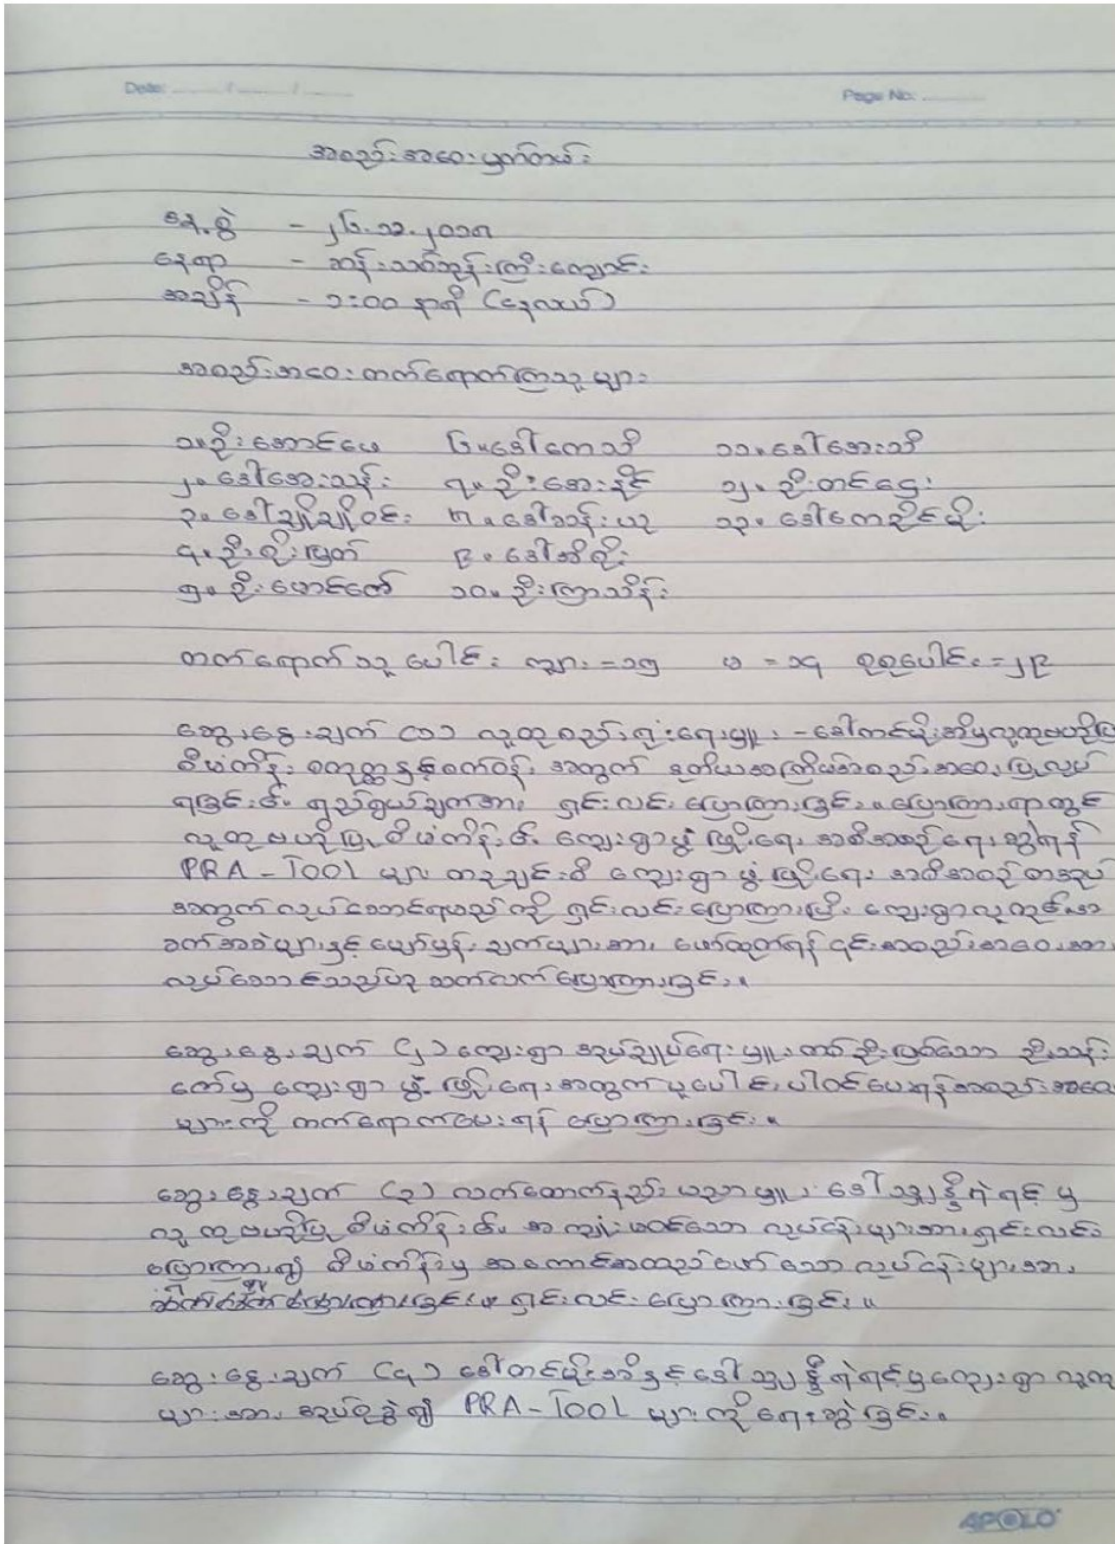 Date: ......../......../........
Page No. ............
အစည်းအဝေးမှတ်တမ်း
နေ့စွဲ - ၂၆.၁၁.၂၀၁၈
နေရာ - ဘုန်းကြီးကျောင်း
အချိန် - ၁:၀၀ နာရီ (နေ့လယ်)
အစည်းအဝေးတက်ရောက်ကြသူများ
၁။ ဦးအောင်ဖေ ၆။ ဒေါ်ကေသီ ၁၁။ ဒေါ်အေးသီ
၂။ ဒေါ်အေးသန်း ၇။ ဦးအေးနိုင် ၁၂။ ဦးတင်ငွေ
၃။ ဒေါ်ချိုချိုဝင်း ၈။ ဒေါ်သန်းယု ၁၃။ ဒေါ်ကေခိုင်မိုး
၄။ ဦးစိုးမြတ် ၉။ ဒေါ်အိစိုး
၅။ ဦးမောင်တော် ၁၀။ ဦးကြာသိန်း
တက်ရောက်သူပေါင်း ကျား = ၁၅ မ = ၁၄ စုစုပေါင်း = ၂၉
ဆွေးနွေးချက် (၁) လူထုစည်းရုံးရေးမှူး - ဒေါ်တင်မိုးအိမှ လူထုဗဟိုပြု
စီမံကိန်း စတုတ္ထနှစ်စက်ဝန်း အတွက် ဒုတိယအကြိမ်အစည်းအဝေးပြုလုပ်
ရခြင်း၏ ရည်ရွယ်ချက်အား ရှင်းလင်းပြောကြားခြင်း။ ပြောကြားရာတွင်
လူထုဗဟိုပြုစီမံကိန်း၏ ကျေးရွာဖွံ့ဖြိုးရေး အစီအစဉ်ရေးဆွဲရန်
PRA-TOOL များ တခုချင်းစီ ကျေးရွာဖွံ့ဖြိုးရေး အစီအစဉ်တအုပ်
အတွက် လုပ်ဆောင်ရမည်ကို ရှင်းလင်းပြောကြားပြီး ကျေးရွာလူထု၏အ
ခက်အခဲများနှင့် မျှော်မှန်းချက်များအား ဖော်ထုတ်ရန် ၎င်းအစည်းအဝေးအား
လုပ်ဆောင်သည်ဟု ဆက်လက်ပြောကြားခြင်း။
ဆွေးနွေးချက် (၂) ကျေးရွာအုပ်ချုပ်ရေးမှူးတစ်ဦးဖြစ်သော ဦးသန်း
ဇော်မှ ကျေးရွာဖွံ့ဖြိုးရေးအတွက် ပူးပေါင်းပါဝင်ပေးရန် အစည်းအဝေး
များကို တက်ရောက်ပေးရန် ပြောကြားခြင်း။
ဆွေးနွေးချက် (၃) လက်ထောက်နည်းပညာမှူး ဒေါ် နှီရဲရင့်မှ
လူထုဗဟိုပြုစီမံကိန်း၏ အကျုံးမဝင်သော လုပ်ငန်းများအား ရှင်းလင်း
ပြောကြား၍ စီမံကိန်းမှ အကောင်အထည်ဖော်သော လုပ်ငန်းများအား
ရှင်းလင်းပြောကြားခြင်း။
ဆွေးနွေးချက် (၄) ဒေါ်တင်မိုးအိနှင့် ဒေါ် နှီရဲရင့်မှ ကျေးရွာလူထု
များအား အုပ်စုခွဲ၍ PRA-TOOL များကို ရေးဆွဲခြင်း။
APOLO